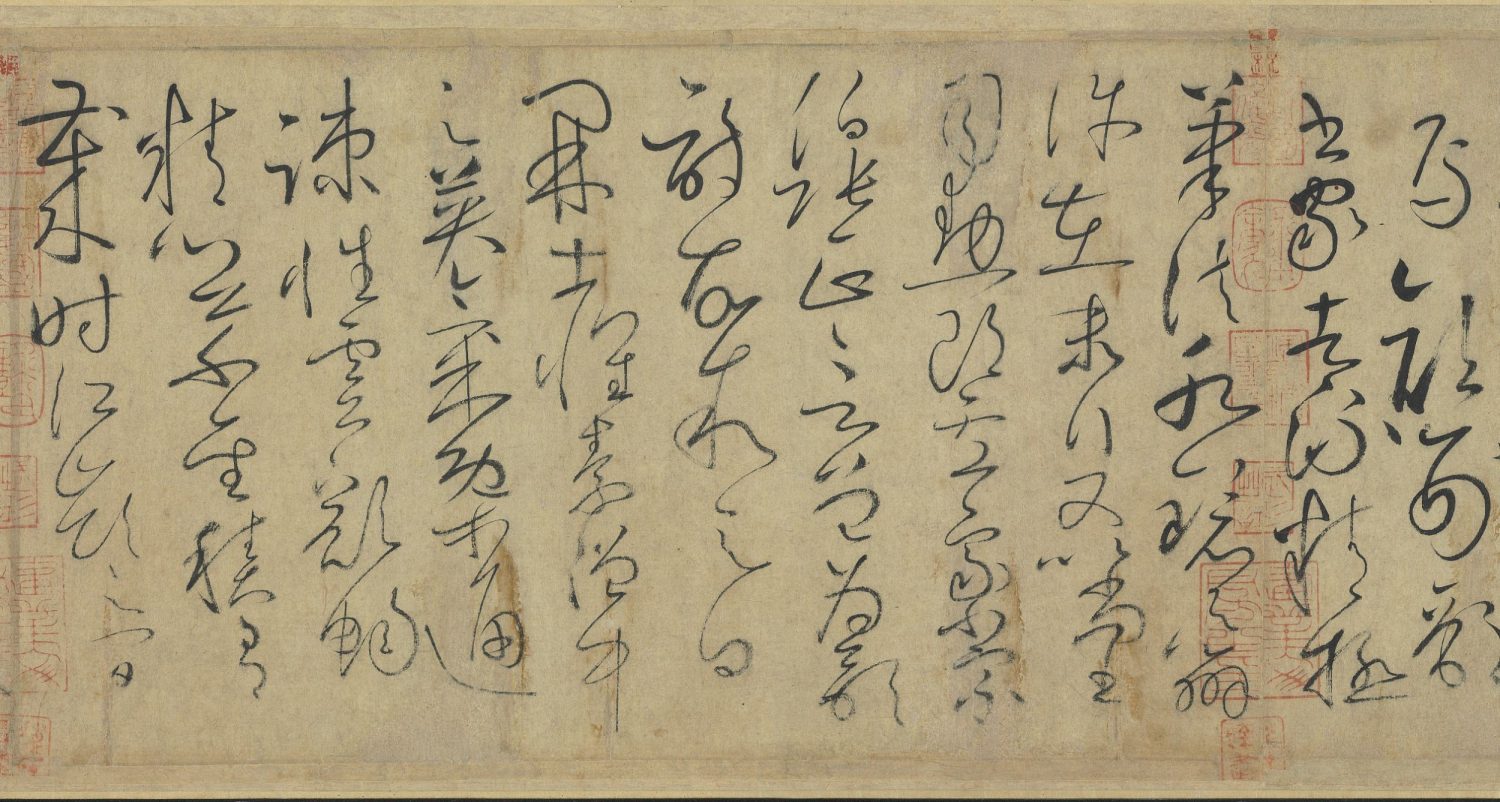 焉顏刑部
書家者流精極
筆法水鏡之辨
許在末行又以尚書
司勳郎盧象小宗
伯張正言曾為歌
詩故敘之曰
開士懷素僧中
之英氣概通
疏性靈豁暢
精心草聖積有
歲時江嶺之間